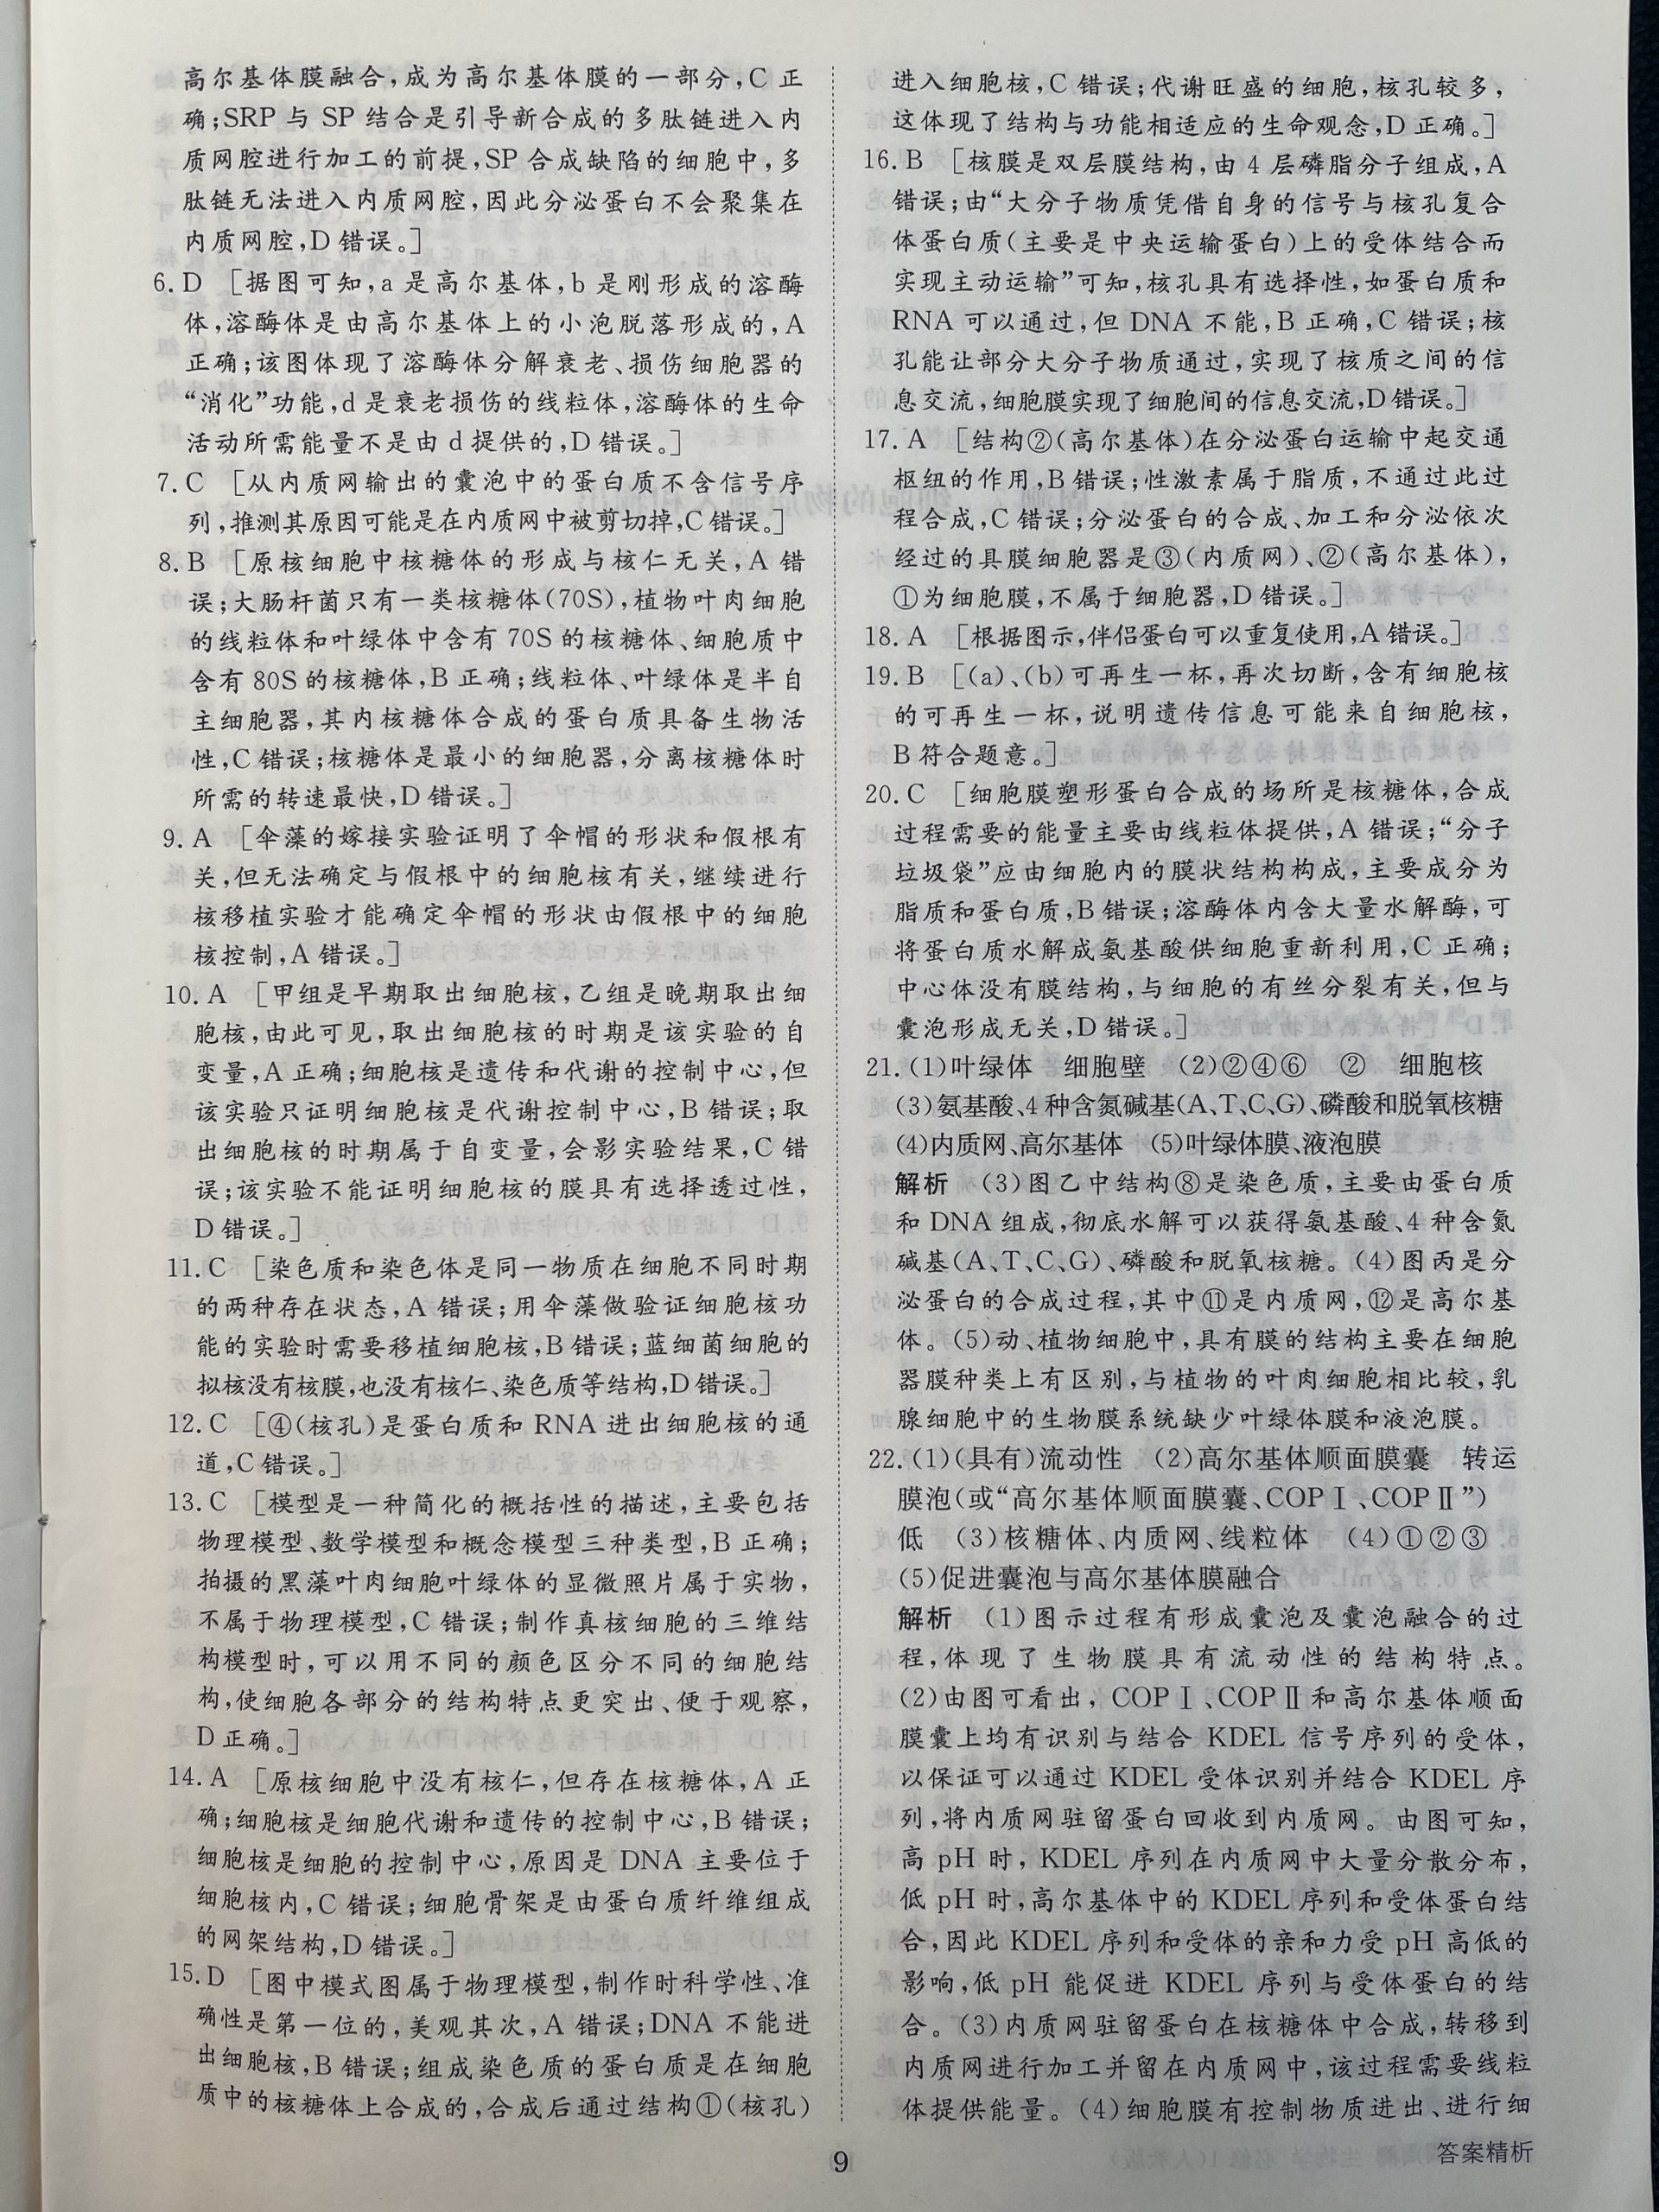 高尔基体膜融合,成为高尔基体膜的一部分,C正
确;SRP与SP结合是引导新合成的多肽链进入内
质网腔进行加工的前提,SP合成缺陷的细胞中,多
肽链无法进入内质网腔,因此分泌蛋白不会聚集在
内质网腔,D错误。]
6. D [据图可知,a是高尔基体,b是刚形成的溶酶
体,溶酶体是由高尔基体上的小泡脱落形成的,A
正确;该图体现了溶酶体分解衰老、损伤细胞器的
“消化”功能,d是衰老损伤的线粒体,溶酶体的生命
活动所需能量不是由d提供的,D错误。]
7. C [从内质网输出的囊泡中的蛋白质不含信号序
列,推测其原因可能是在内质网中被剪切掉,C错误。]
8. B [原核细胞中核糖体的形成与核仁无关,A错
误;大肠杆菌只有一类核糖体(70S),植物叶肉细胞
的线粒体和叶绿体中含有70S的核糖体、细胞质中
含有80S的核糖体,B正确;线粒体、叶绿体是半自
主细胞器,其内核糖体合成的蛋白质具备生物活
性,C错误;核糖体是最小的细胞器,分离核糖体时
所需的转速最快,D错误。]
9. A [伞藻的嫁接实验证明了伞帽的形状和假根有
关,但无法确定与假根中的细胞核有关,继续进行
核移植实验才能确定伞帽的形状由假根中的细胞
核控制,A错误。]
10. A [甲组是早期取出细胞核,乙组是晚期取出细
胞核,由此可见,取出细胞核的时期是该实验的自
变量,A正确;细胞核是遗传和代谢的控制中心,但
该实验只证明细胞核是代谢控制中心,B错误;取
出细胞核的时期属于自变量,会影实验结果,C错
误;该实验不能证明细胞核的膜具有选择透过性,
D错误。]
11. C [染色质和染色体是同一物质在细胞不同时期
的两种存在状态,A错误;用伞藻做验证细胞核功
能的实验时需要移植细胞核,B错误;蓝细菌细胞的
拟核没有核膜,也没有核仁、染色质等结构,D错误。]
12. C [④(核孔)是蛋白质和RNA进出细胞核的通
道,C错误。]
13. C [模型是一种简化的概括性的描述,主要包括
物理模型、数学模型和概念模型三种类型,B正确;
拍摄的黑藻叶肉细胞叶绿体的显微照片属于实物,
不属于物理模型,C错误;制作真核细胞的三维结
构模型时,可以用不同的颜色区分不同的细胞结
构,使细胞各部分的结构特点更突出、便于观察,
D正确。]
14. A [原核细胞中没有核仁,但存在核糖体,A正
确;细胞核是细胞代谢和遗传的控制中心,B错误;
细胞核是细胞的控制中心,原因是DNA主要位于
细胞核内,C错误;细胞骨架是由蛋白质纤维组成
的网架结构,D错误。]
15. D [图中模式图属于物理模型,制作时科学性、准
确性是第一位的,美观其次,A错误;DNA不能进
出细胞核,B错误;组成染色质的蛋白质是在细胞
质中的核糖体上合成的,合成后通过结构①(核孔)
进入细胞核,C错误;代谢旺盛的细胞,核孔较多,
这体现了结构与功能相适应的生命观念,D正确。]
16. B [核膜是双层膜结构,由4层磷脂分子组成,A
错误;由“大分子物质凭借自身的信号与核孔复合
体蛋白质(主要是中央运输蛋白)上的受体结合而
实现主动运输”可知,核孔具有选择性,如蛋白质和
RNA可以通过,但DNA不能,B正确,C错误;核
孔能让部分大分子物质通过,实现了核质之间的信
息交流,细胞膜实现了细胞间的信息交流,D错误。]
17. A [结构②(高尔基体)在分泌蛋白运输中起交通
枢纽的作用,B错误;性激素属于脂质,不通过此过
程合成,C错误;分泌蛋白的合成、加工和分泌依次
经过的具膜细胞器是③(内质网)、②(高尔基体),
①为细胞膜,不属于细胞器,D错误。]
18. A [根据图示,伴侣蛋白可以重复使用,A错误。]
19. B [(a)、(b)可再生一杯,再次切断,含有细胞核
的可再生一杯,说明遗传信息可能来自细胞核,
B符合题意。]
20. C [细胞膜塑形蛋白合成的场所是核糖体,合成
过程需要的能量主要由线粒体提供,A错误;“分子
垃圾袋”应由细胞内的膜状结构构成,主要成分为
脂质和蛋白质,B错误;溶酶体内含大量水解酶,可
将蛋白质水解成氨基酸供细胞重新利用,C正确;
中心体没有膜结构,与细胞的有丝分裂有关,但与
囊泡形成无关,D错误。]
21. (1)叶绿体 细胞壁 (2)②④⑥ ② 细胞核
(3)氨基酸、4种含氮碱基(A、T、C、G)、磷酸和脱氧核糖
(4)内质网、高尔基体 (5)叶绿体膜、液泡膜
解析 (3)图乙中结构⑧是染色质,主要由蛋白质
和DNA组成,彻底水解可以获得氨基酸、4种含氮
碱基(A、T、C、G)、磷酸和脱氧核糖。(4)图丙是分
泌蛋白的合成过程,其中⑪是内质网,⑫是高尔基
体。(5)动、植物细胞中,具有膜的结构主要在细胞
器膜种类上有区别,与植物的叶肉细胞相比较,乳
腺细胞中的生物膜系统缺少叶绿体膜和液泡膜。
22. (1)(具有)流动性 (2)高尔基体顺面膜囊 转运
膜泡(或“高尔基体顺面膜囊、COPⅠ、COPⅡ”)
低 (3)核糖体、内质网、线粒体 (4)①②③
(5)促进囊泡与高尔基体膜融合
解析 (1)图示过程有形成囊泡及囊泡融合的过
程,体现了生物膜具有流动性的结构特点。
(2)由图可看出,COPⅠ、COPⅡ和高尔基体顺面
膜囊上均有识别与结合KDEL信号序列的受体,
以保证可以通过KDEL受体识别并结合KDEL序
列,将内质网驻留蛋白回收到内质网。由图可知,
高pH时,KDEL序列在内质网中大量分散分布,
低pH时,高尔基体中的KDEL序列和受体蛋白结
合,因此KDEL序列和受体的亲和力受pH高低的
影响,低pH能促进KDEL序列与受体蛋白的结
合。(3)内质网驻留蛋白在核糖体中合成,转移到
内质网进行加工并留在内质网中,该过程需要线粒
体提供能量。(4)细胞膜有控制物质进出、进行细
9
答案精析